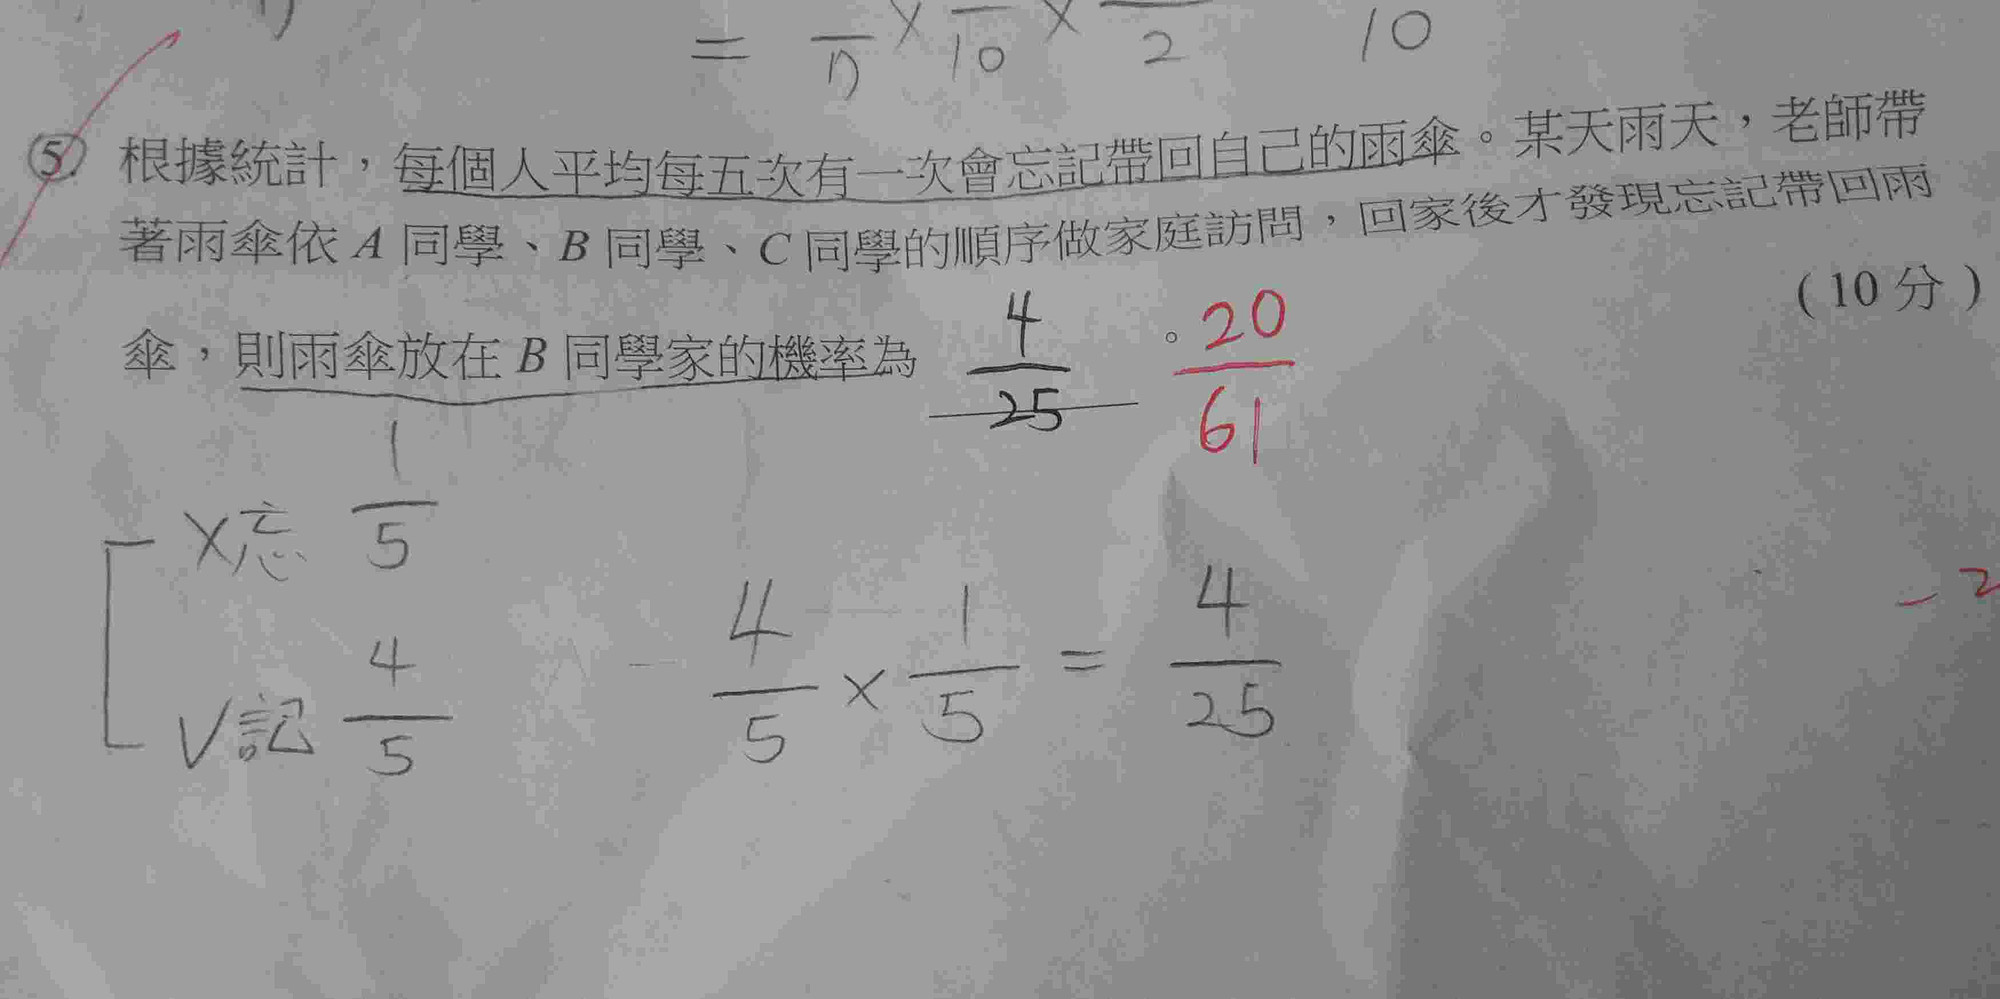 = × 10 × 2 10
5. 根據統計，每個人平均每五次有一次會忘記帶回自己的雨傘。某天雨天，老師帶
著雨傘依 A 同學、B 同學、C 同學的順序做家庭訪問，回家後才發現忘記帶回雨
傘，則雨傘放在 B 同學家的機率為 4/25 。 20/61 （10 分）
×忘 1/5
V記 4/5
4/5 × 1/5 = 4/25
-2